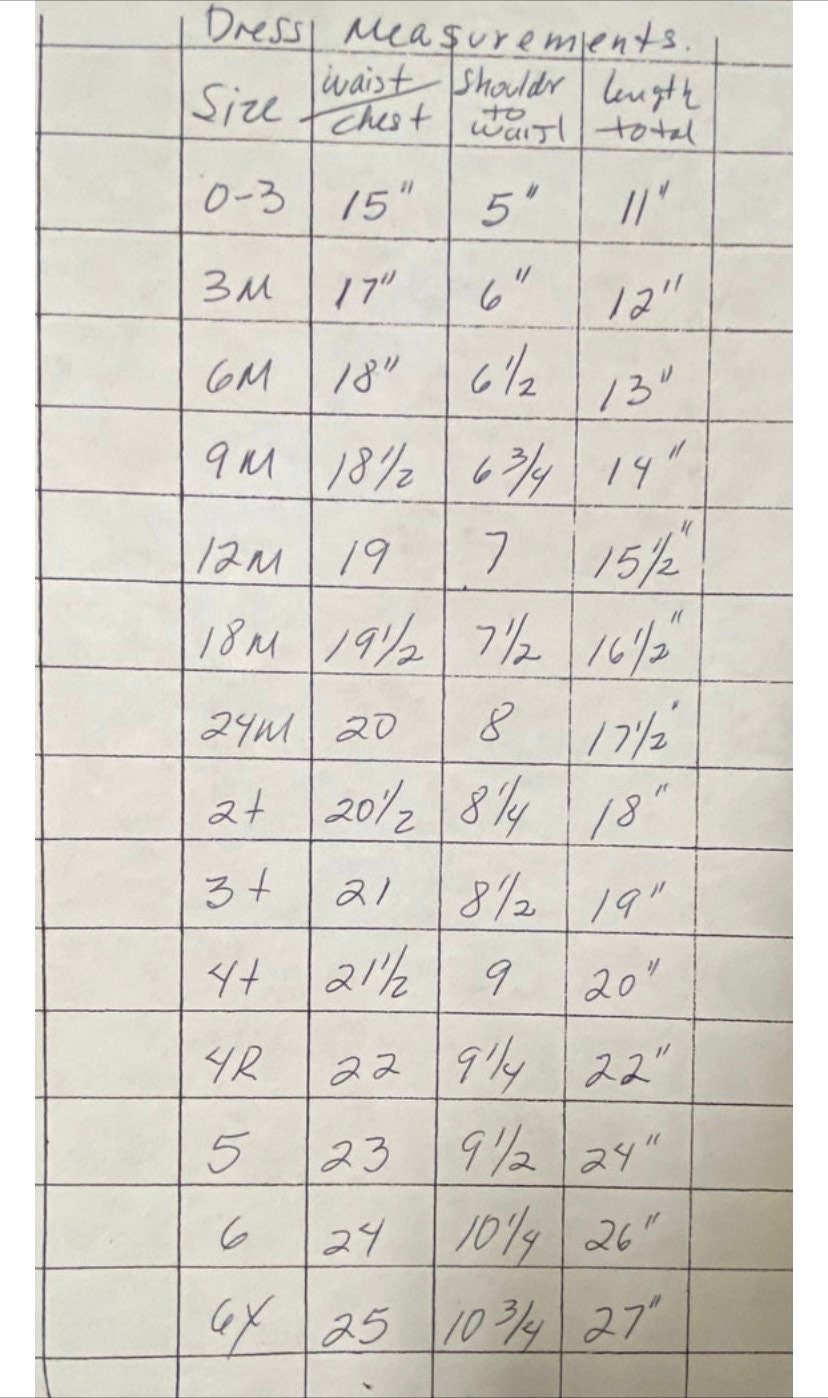 Dress Measurements.
Size waist/chest Shouldr to waist length total
0-3 15" 5" 11"
3M 17" 6" 12"
6M 18" 6 1/2 13"
9M 18 1/2 6 3/4 14"
12M 19 7 15 1/2"
18M 19 1/2 7 1/2 16 1/2"
24M 20 8 17 1/2"
2t 20 1/2 8 1/4 18"
3t 21 8 1/2 19"
4t 21 1/2 9 20"
4R 22 9 1/4 22"
5 23 9 1/2 24"
6 24 10 1/4 26"
6X 25 10 3/4 27"